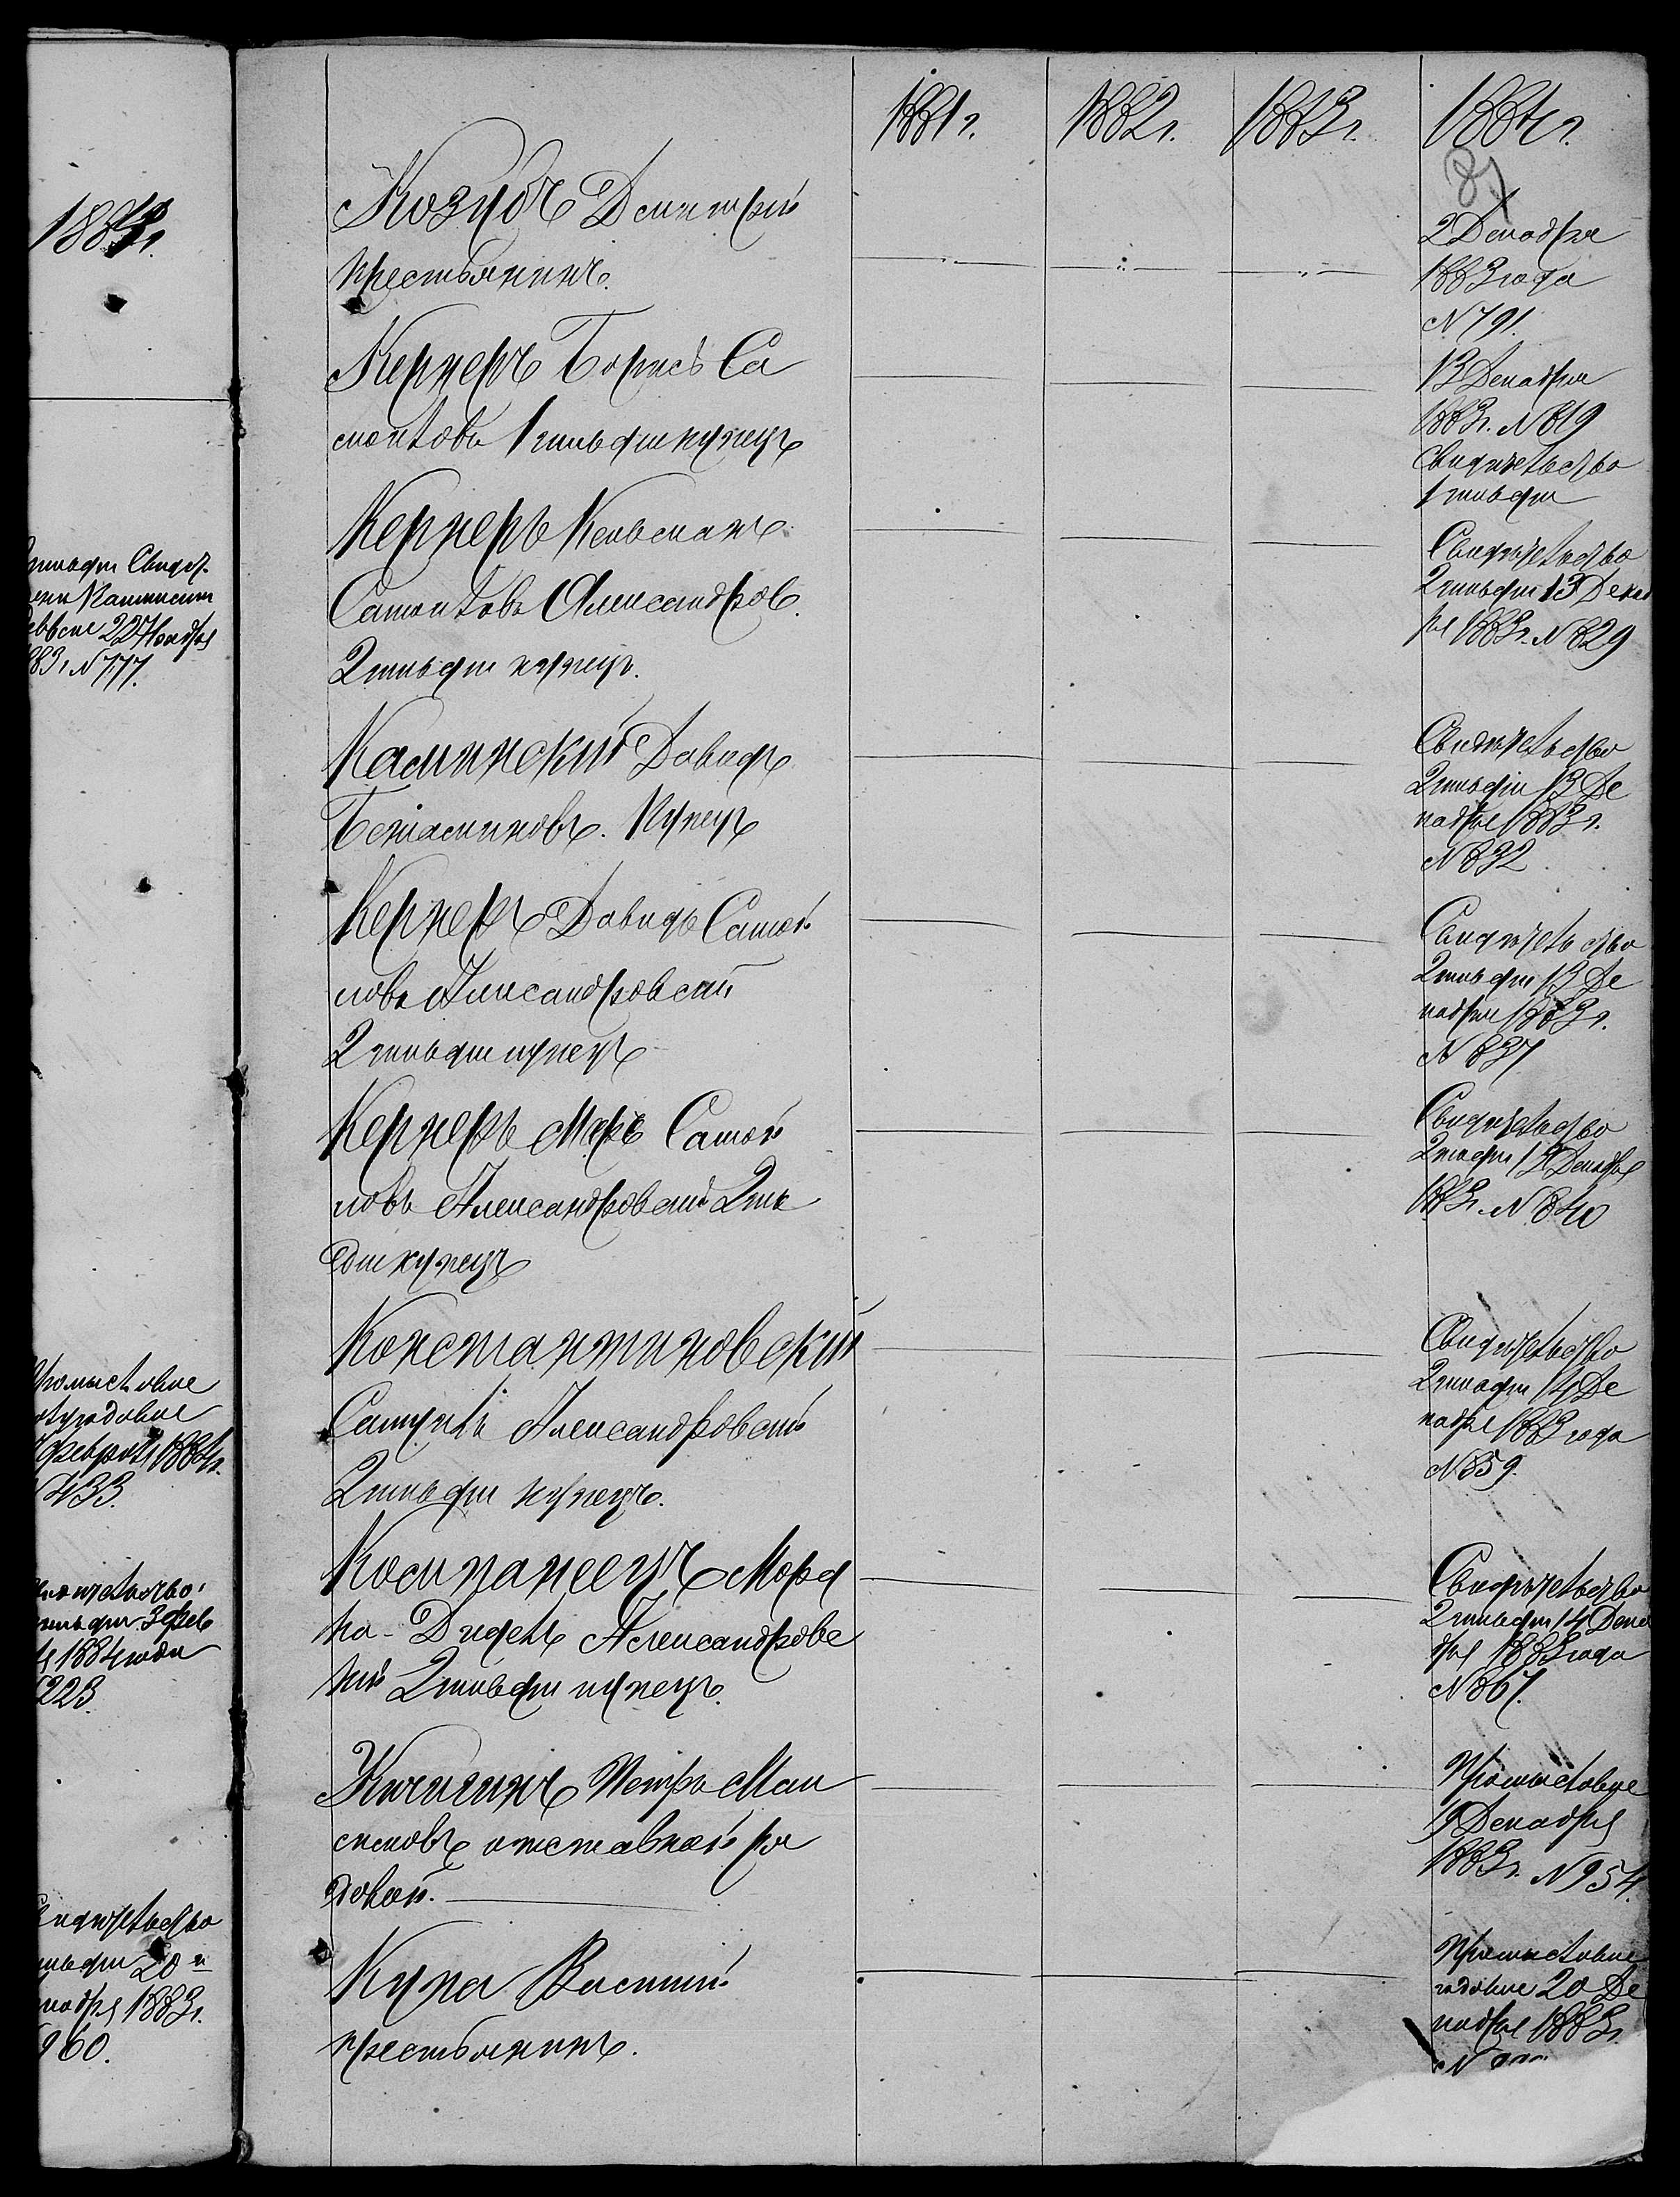 1883г.
гильдіи Свидѣт.
22 Ноября
1883г. N 777.
Промысловое
полугодовое
февраля 1884г.
433.
Свидѣтельство
гильдіи 3 Фев
1884 года
223.
Свидѣтельство
гильдіи 20 и
кабря 1883г.
960.
1881г. 1882г. 1883г. 1884г.
87
Козубъ Дмитрій
крестьянинъ.
2 Декабря
1883 года
N 791.
Кернеръ Борисъ Са
мойловъ 1 гильдіи купецъ
13 Декабря
1883г. N 819
Свидѣтельство
1 гильдіи
Кернеръ Кельманъ
Самойловъ Александров.
2 гильдіи купецъ.
Свидѣтельство
2 гильдіи 13 Декаб
ря 1883г. N 829
Каминскій Давидъ
Беніаминовъ. Купецъ
Свидѣтельство
2 гильдіи 13 Де
кабря 1883г.
N 832
Кернеръ Давидъ Самой
ловъ Александровскій
2 гильдіи купецъ
Свидѣтельство
2 гильдіи 13 Де
кабря 1883г.
N 837
Кернеръ Маркъ Самой
ловъ Александровскій 2 гиль
діи купецъ
Свидѣтельство
2 гильдіи 13 Декабря
1883г. N 840
Константиновскій
Самуилъ Александровскій
2 гильдіи купецъ.
Свидѣтельство
2 гильдіи 14 Де
кабря 1883 года
N 859.
Компанеецъ Морд
ко- Александровс
кій 2 гильдіи купецъ.
Свидѣтельство
2 гильдіи 14 Дека
бря 1883 года
N 867.
Кичигинъ Петръ Мак
симовъ отставной ря
довой.
Промысловое
19 Декабря
1883г. N 954.
Купа Василій
крестьянинъ.
Промысловое
годовое 20 Де
кабря 1883г.
N